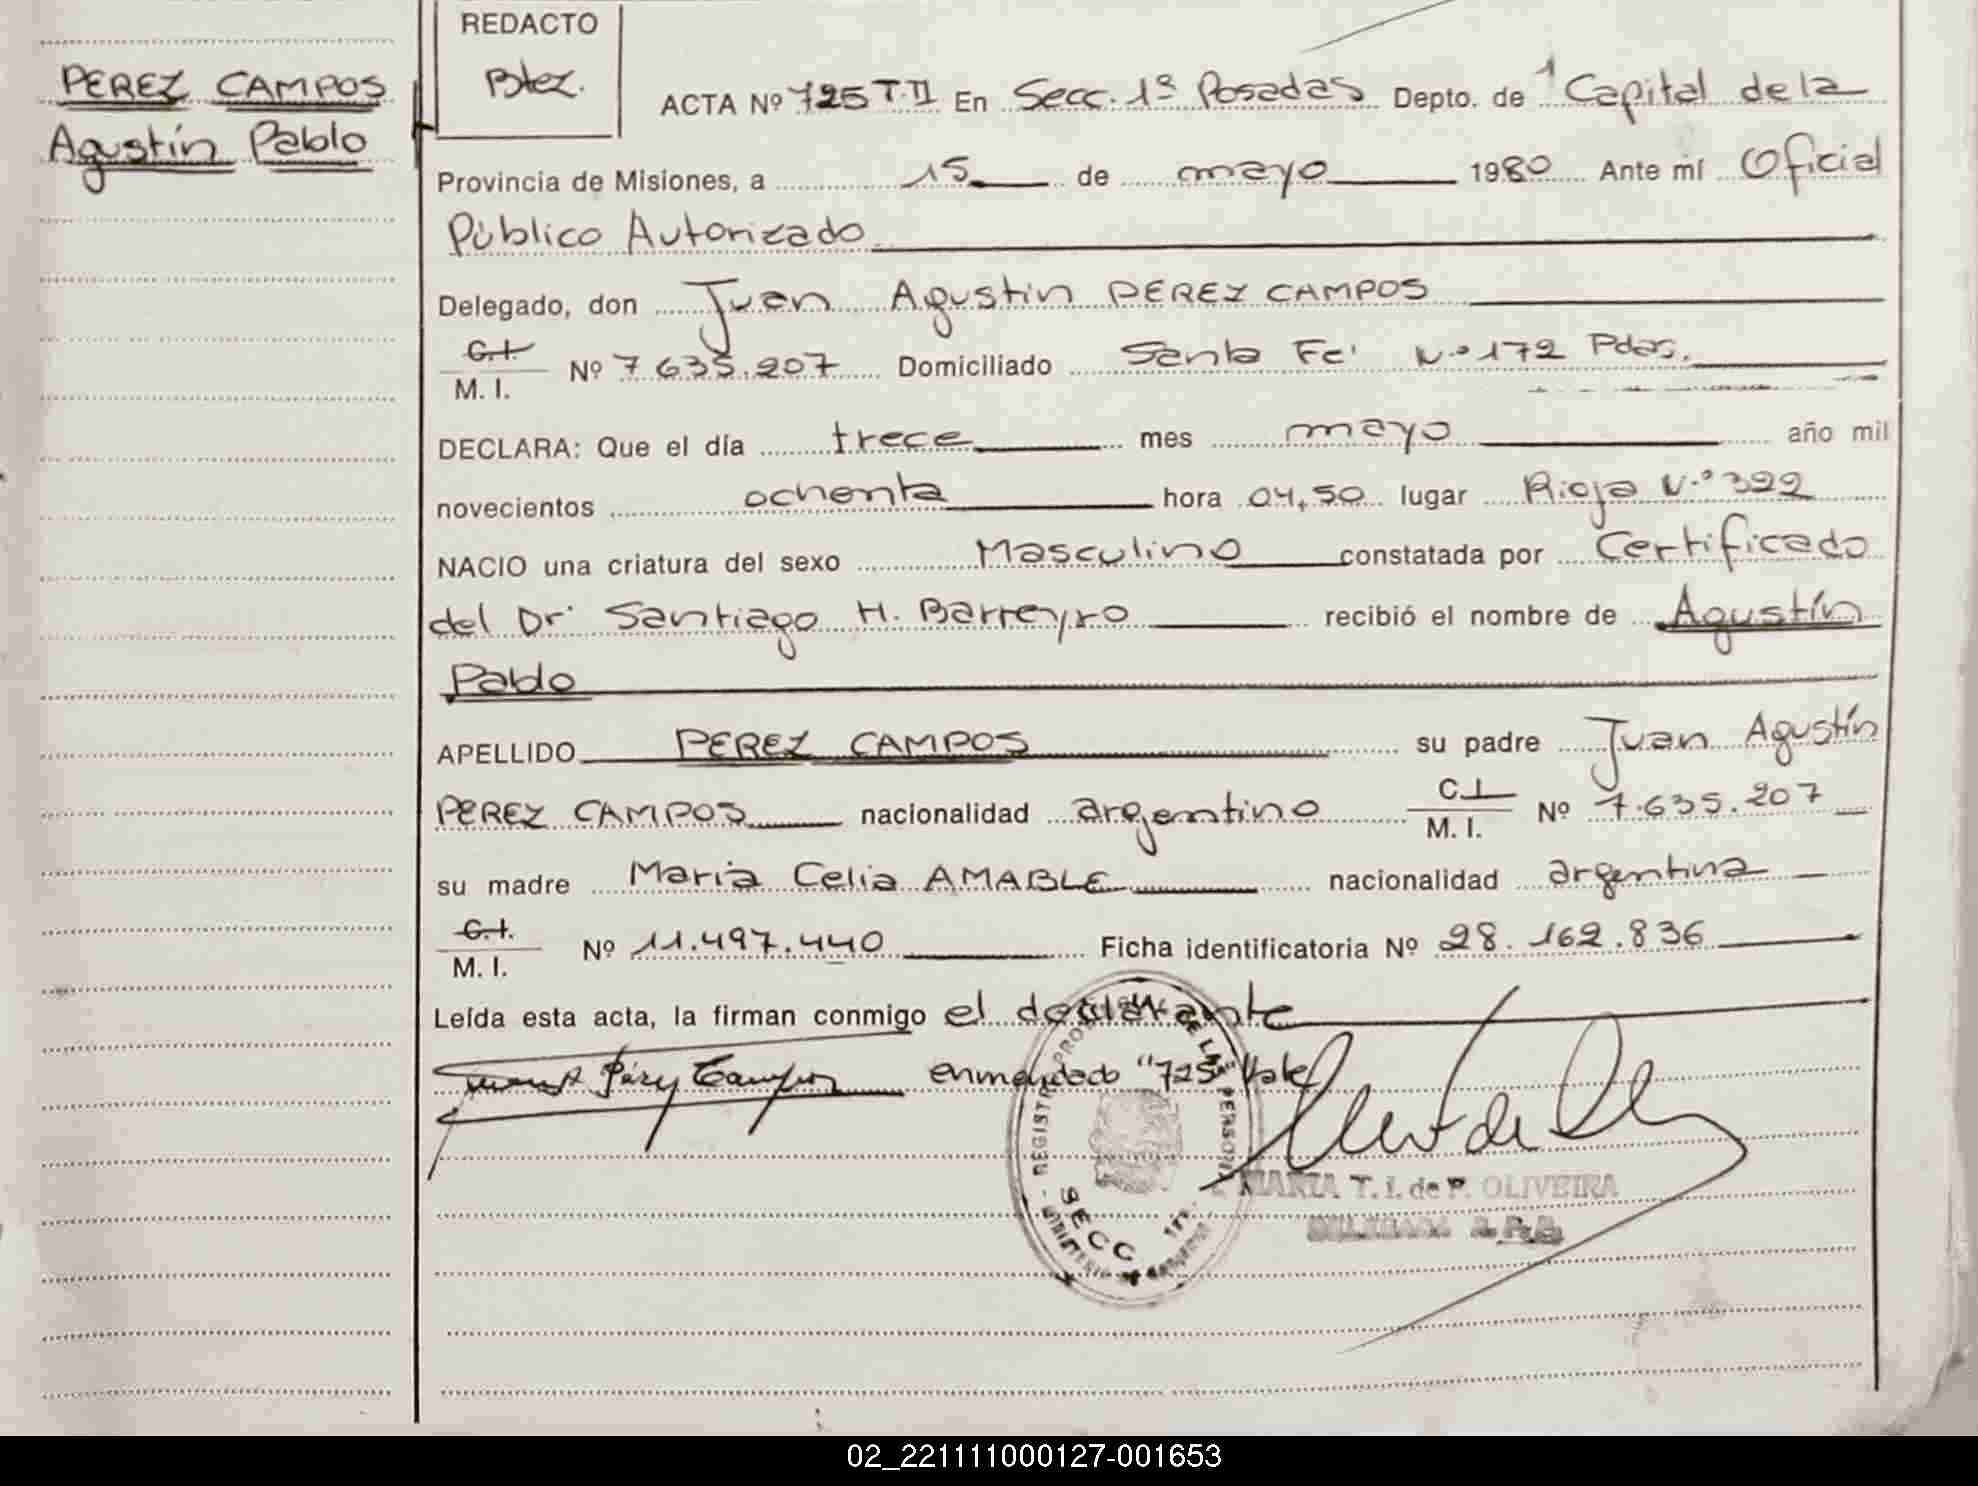 PEREZ CAMPOS
Agustín Pablo
REDACTO
Btez.
ACTA Nº 725 T.II En Secc. 1ª Posadas Depto. de Capital de la
Provincia de Misiones, a 15 de mayo 1980 Ante mí Oficial
Público Autorizado
Delegado, don Juan Agustin PEREZ CAMPOS
C.I.
M. I. Nº 7.635.207 Domiciliado Santa Fe' N.º 172 Pdas.
DECLARA: Que el día trece mes mayo año mil
novecientos ochenta hora 04,50 lugar Rioja N.º 392
NACIO una criatura del sexo Masculino constatada por Certificado
del Dr. Santiago H. Barreyro recibió el nombre de Agustín
Pablo
APELLIDO PEREZ CAMPOS su padre Juan Agustín
PEREZ CAMPOS nacionalidad argentino C.I.
M. I. Nº 7.635.207
su madre Maria Celia AMABLE nacionalidad argentina
C.I.
M. I. Nº 11.497.440 Ficha identificatoria Nº 28.162.836
Leída esta acta, la firman conmigo el declarante
enmendado "725" Vale
SECC
MARTA T. I. de P. OLIVEIRA
02_221111000127-001653